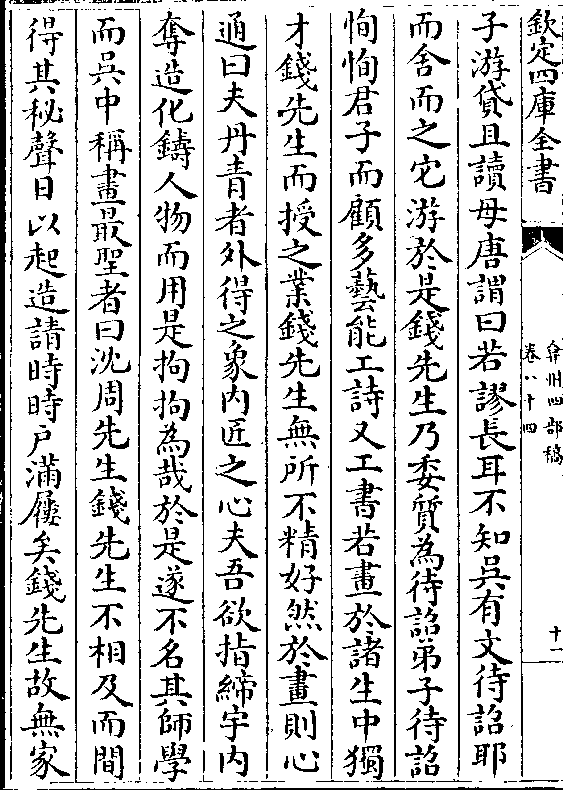 欽定四庫全書
弇州四部稿
卷八十四
十一
子游貸且讀母唐謂曰若謬長耳不知吳有文待詔耶
而舍而之它游於是錢先生乃委質為待詔弟子待詔
恂恂君子而顧多藝能工詩又工書若畫於諸生中獨
才錢先生而授之業錢先生無所不精好然於畫則心
通曰夫丹青者外得之象内匠之心夫吾欲指締宇内
奪造化鑄人物而用是拘拘為哉於是遂不名其師學
而吳中稱畫最聖者曰沈周先生錢先生不相及而間
得其秘聲日以起造請時時户滿屨矣錢先生故無家